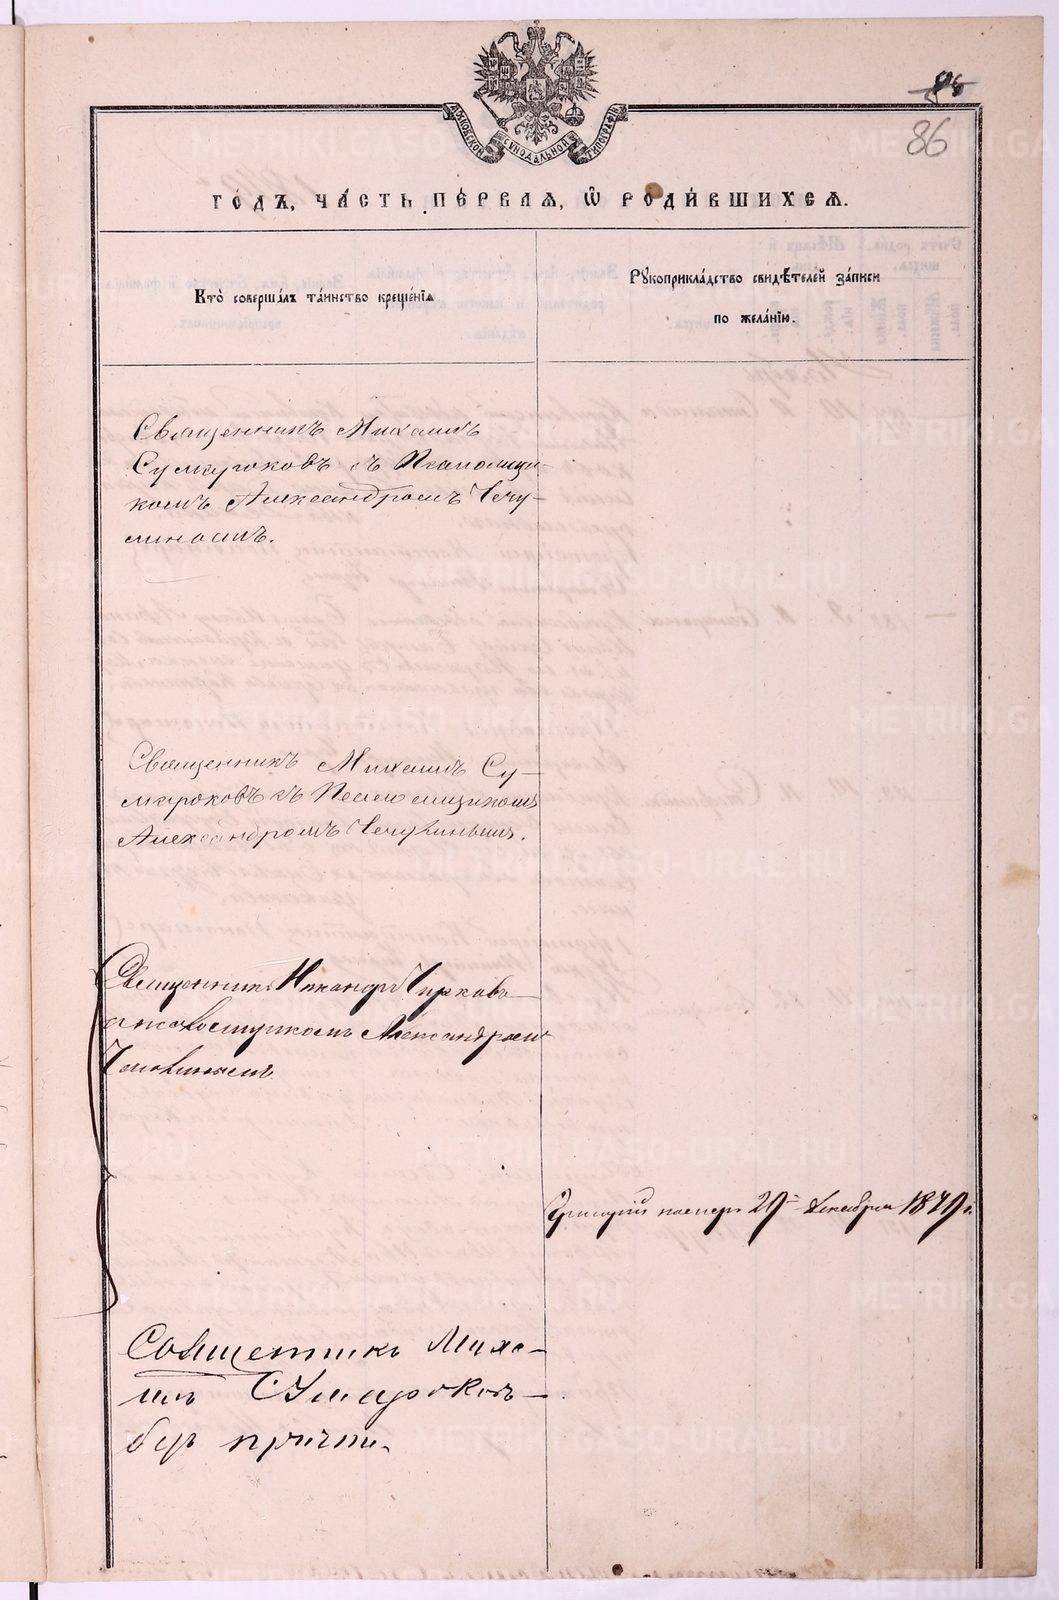 86
МОСКОВСКОЙ СѴНОДАЛЬНОЙ ТИПОГРАФІИ
ГО́ДЪ, ЧА́СТЬ ПЕ́РВАЯ, Ѡ҆ РОДИ́ВШИХСЯ.
Кто̀ соверша́лъ та́инство креще́нїя
Рꙋкоприкла́дство свидѣ́телей за́писи
по жела́нїю.
Священникъ Михаилъ
Сумароковъ съ Псаломщи-
комъ Александромъ Чечу-
линымъ.
Священникъ Михаилъ Су-
мароковъ съ Псаломщикомъ
Александромъ Чечулинымъ.
Священникъ Никаноръ Чирковъ
Александромъ
Чечулинымъ
29 декабря 1879 г.
Священникъ Миха-
илъ Сумароковъ
безъ причта.
METRIKI.GASO-URAL.RU